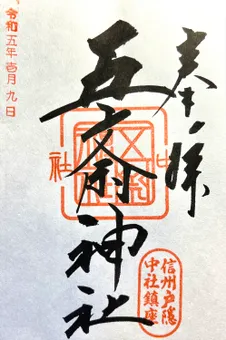 奉拝
五斎神社
信州戸隠
中社鎮座
令和五年壱月九日